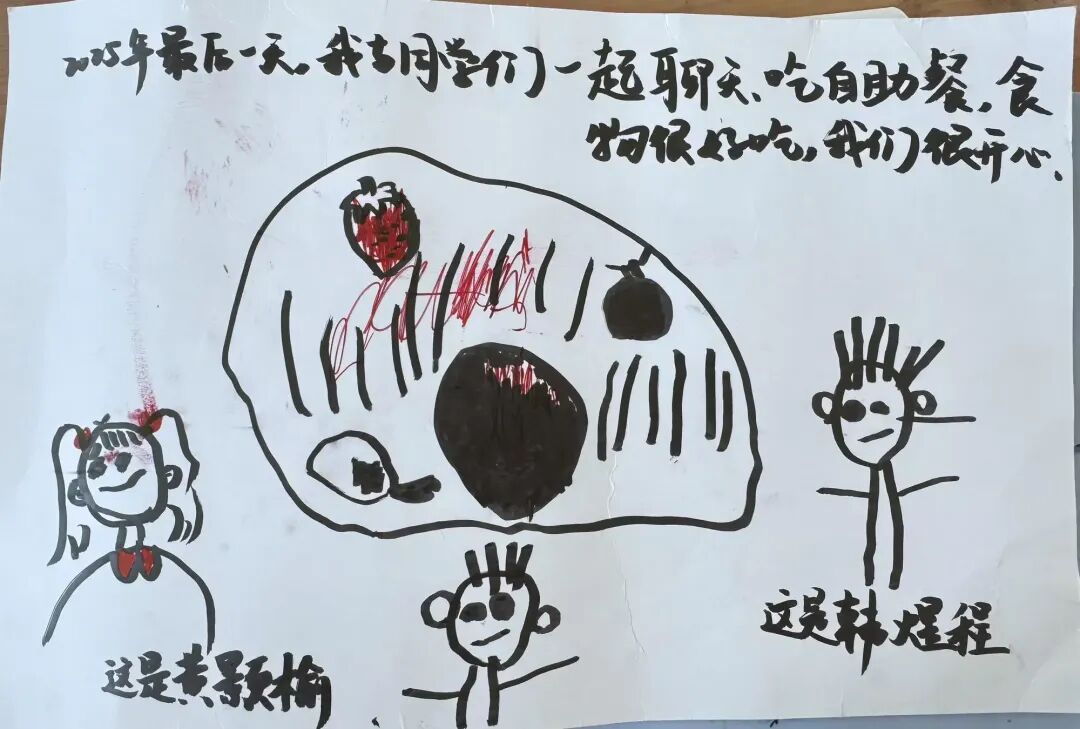 2025年最后一天,我与同学们一起聊天、吃自助餐,食
物很好吃,我们很开心、
这是韩煋程
这是黄颢榆